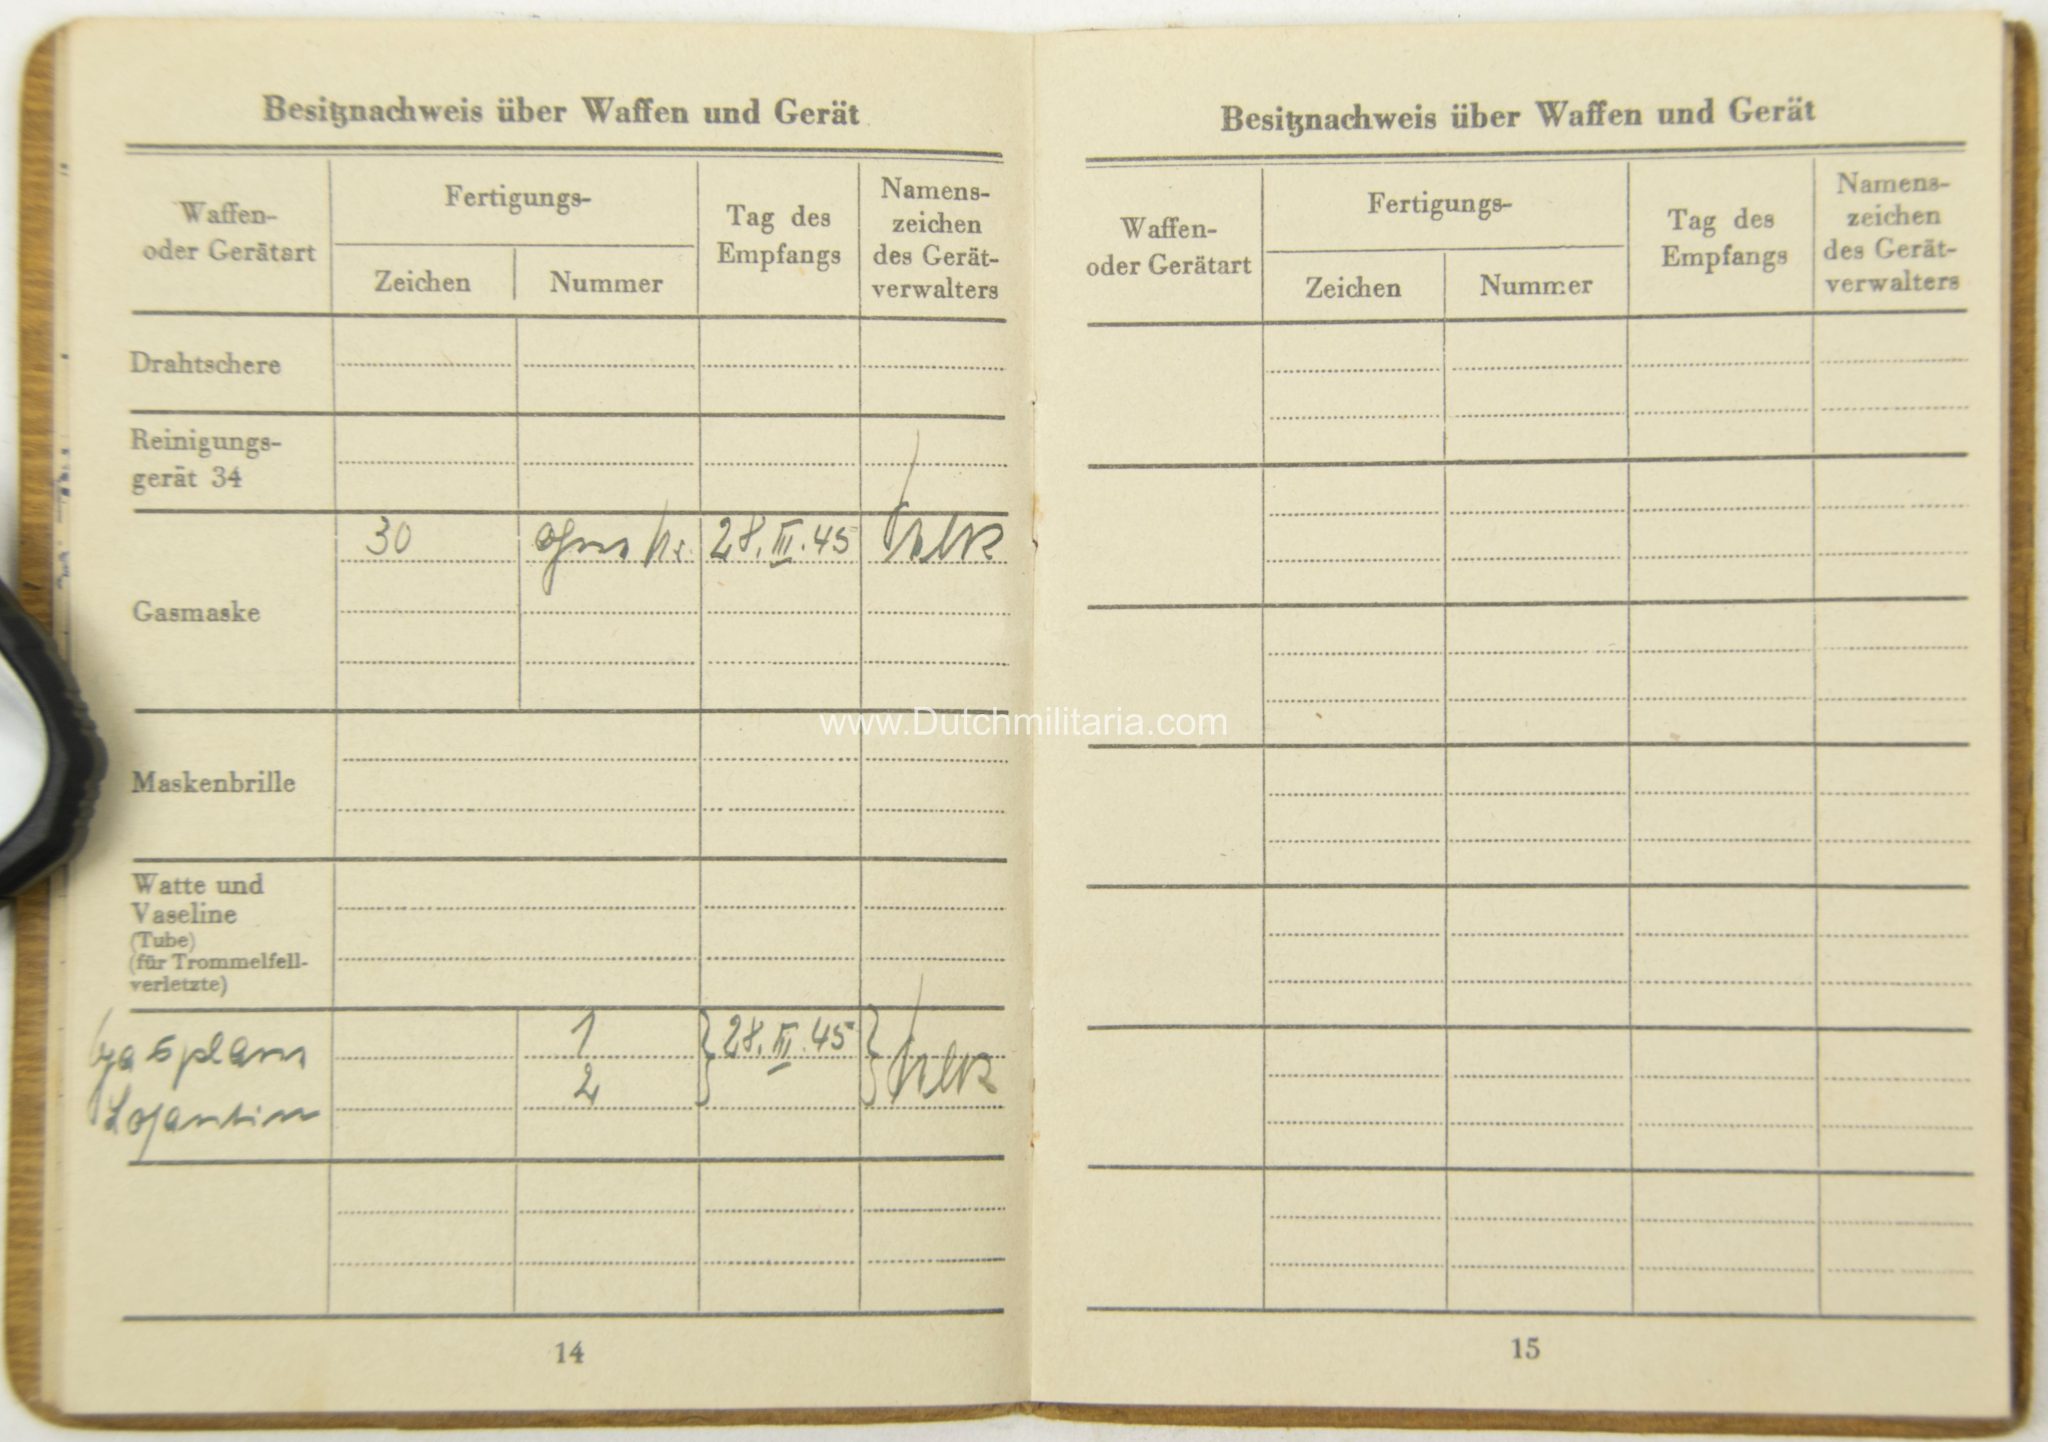 Besitznachweis über Waffen und Gerät
Waffen-
oder Gerätart
Fertigungs-
Zeichen
Nummer
Tag des
Empfangs
Namens-
zeichen
des Gerät-
verwalters
Drahtschere
Reinigungs-
gerät 34
Gasmaske
30
ohne Nr.
28. III. 45
Maskenbrille
Watte und
Vaseline
(Tube)
(für Trommelfell-
verletzte)
Gasplane
1
28. III. 45
Losantin
2
14
Besitznachweis über Waffen und Gerät
Waffen-
oder Gerätart
Fertigungs-
Zeichen
Nummer
Tag des
Empfangs
Namens-
zeichen
des Gerät-
verwalters
15
www.Dutchmilitaria.com